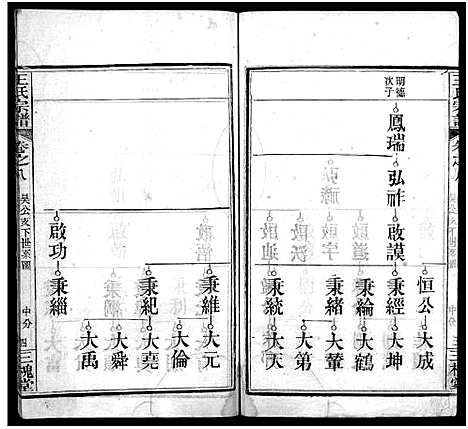 王氏宗譜
卷之八
三槐堂
明德
次子
鳳瑞
弘祚
啟謨
恒公
大成
秉經
大坤
秉綸
大鶴
秉緒
大輦
大第
秉統
大天
王氏宗譜
卷之八
吴公支下世系圖
中分
四
三槐堂
秉維
大元
大倫
秉紀
大堯
大舜
啟功
秉緇
大禹